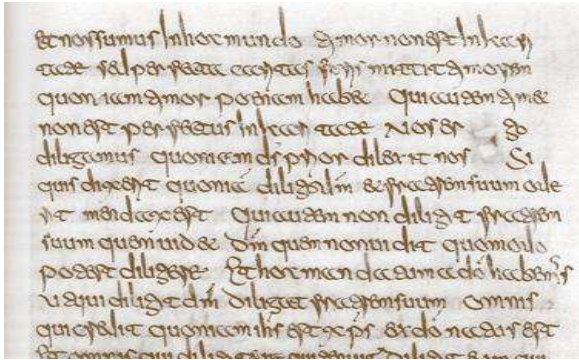 et nos sumus In hoc mundo Timor non est In kari
tate sed perfecta caritas foras mittit timorem
quoniam timor poenam habet Qui autem timet
non est perfectus In caritate Nos er go
diligamus quoniam ds prior dilexit nos Si
quis dixerit quoniam diligo dm et fratrem suum ode
rit mendax est Qui autem non diligit fratrem
suum quem uidet dm quem non uidit quomodo
potest diligere Et hoc mandatum a do habemus
ut qui diligit dm diligat fratrem suum Omnis
qui credit quoniam ihs est xps ex do natus est
Et omnis qui diligit